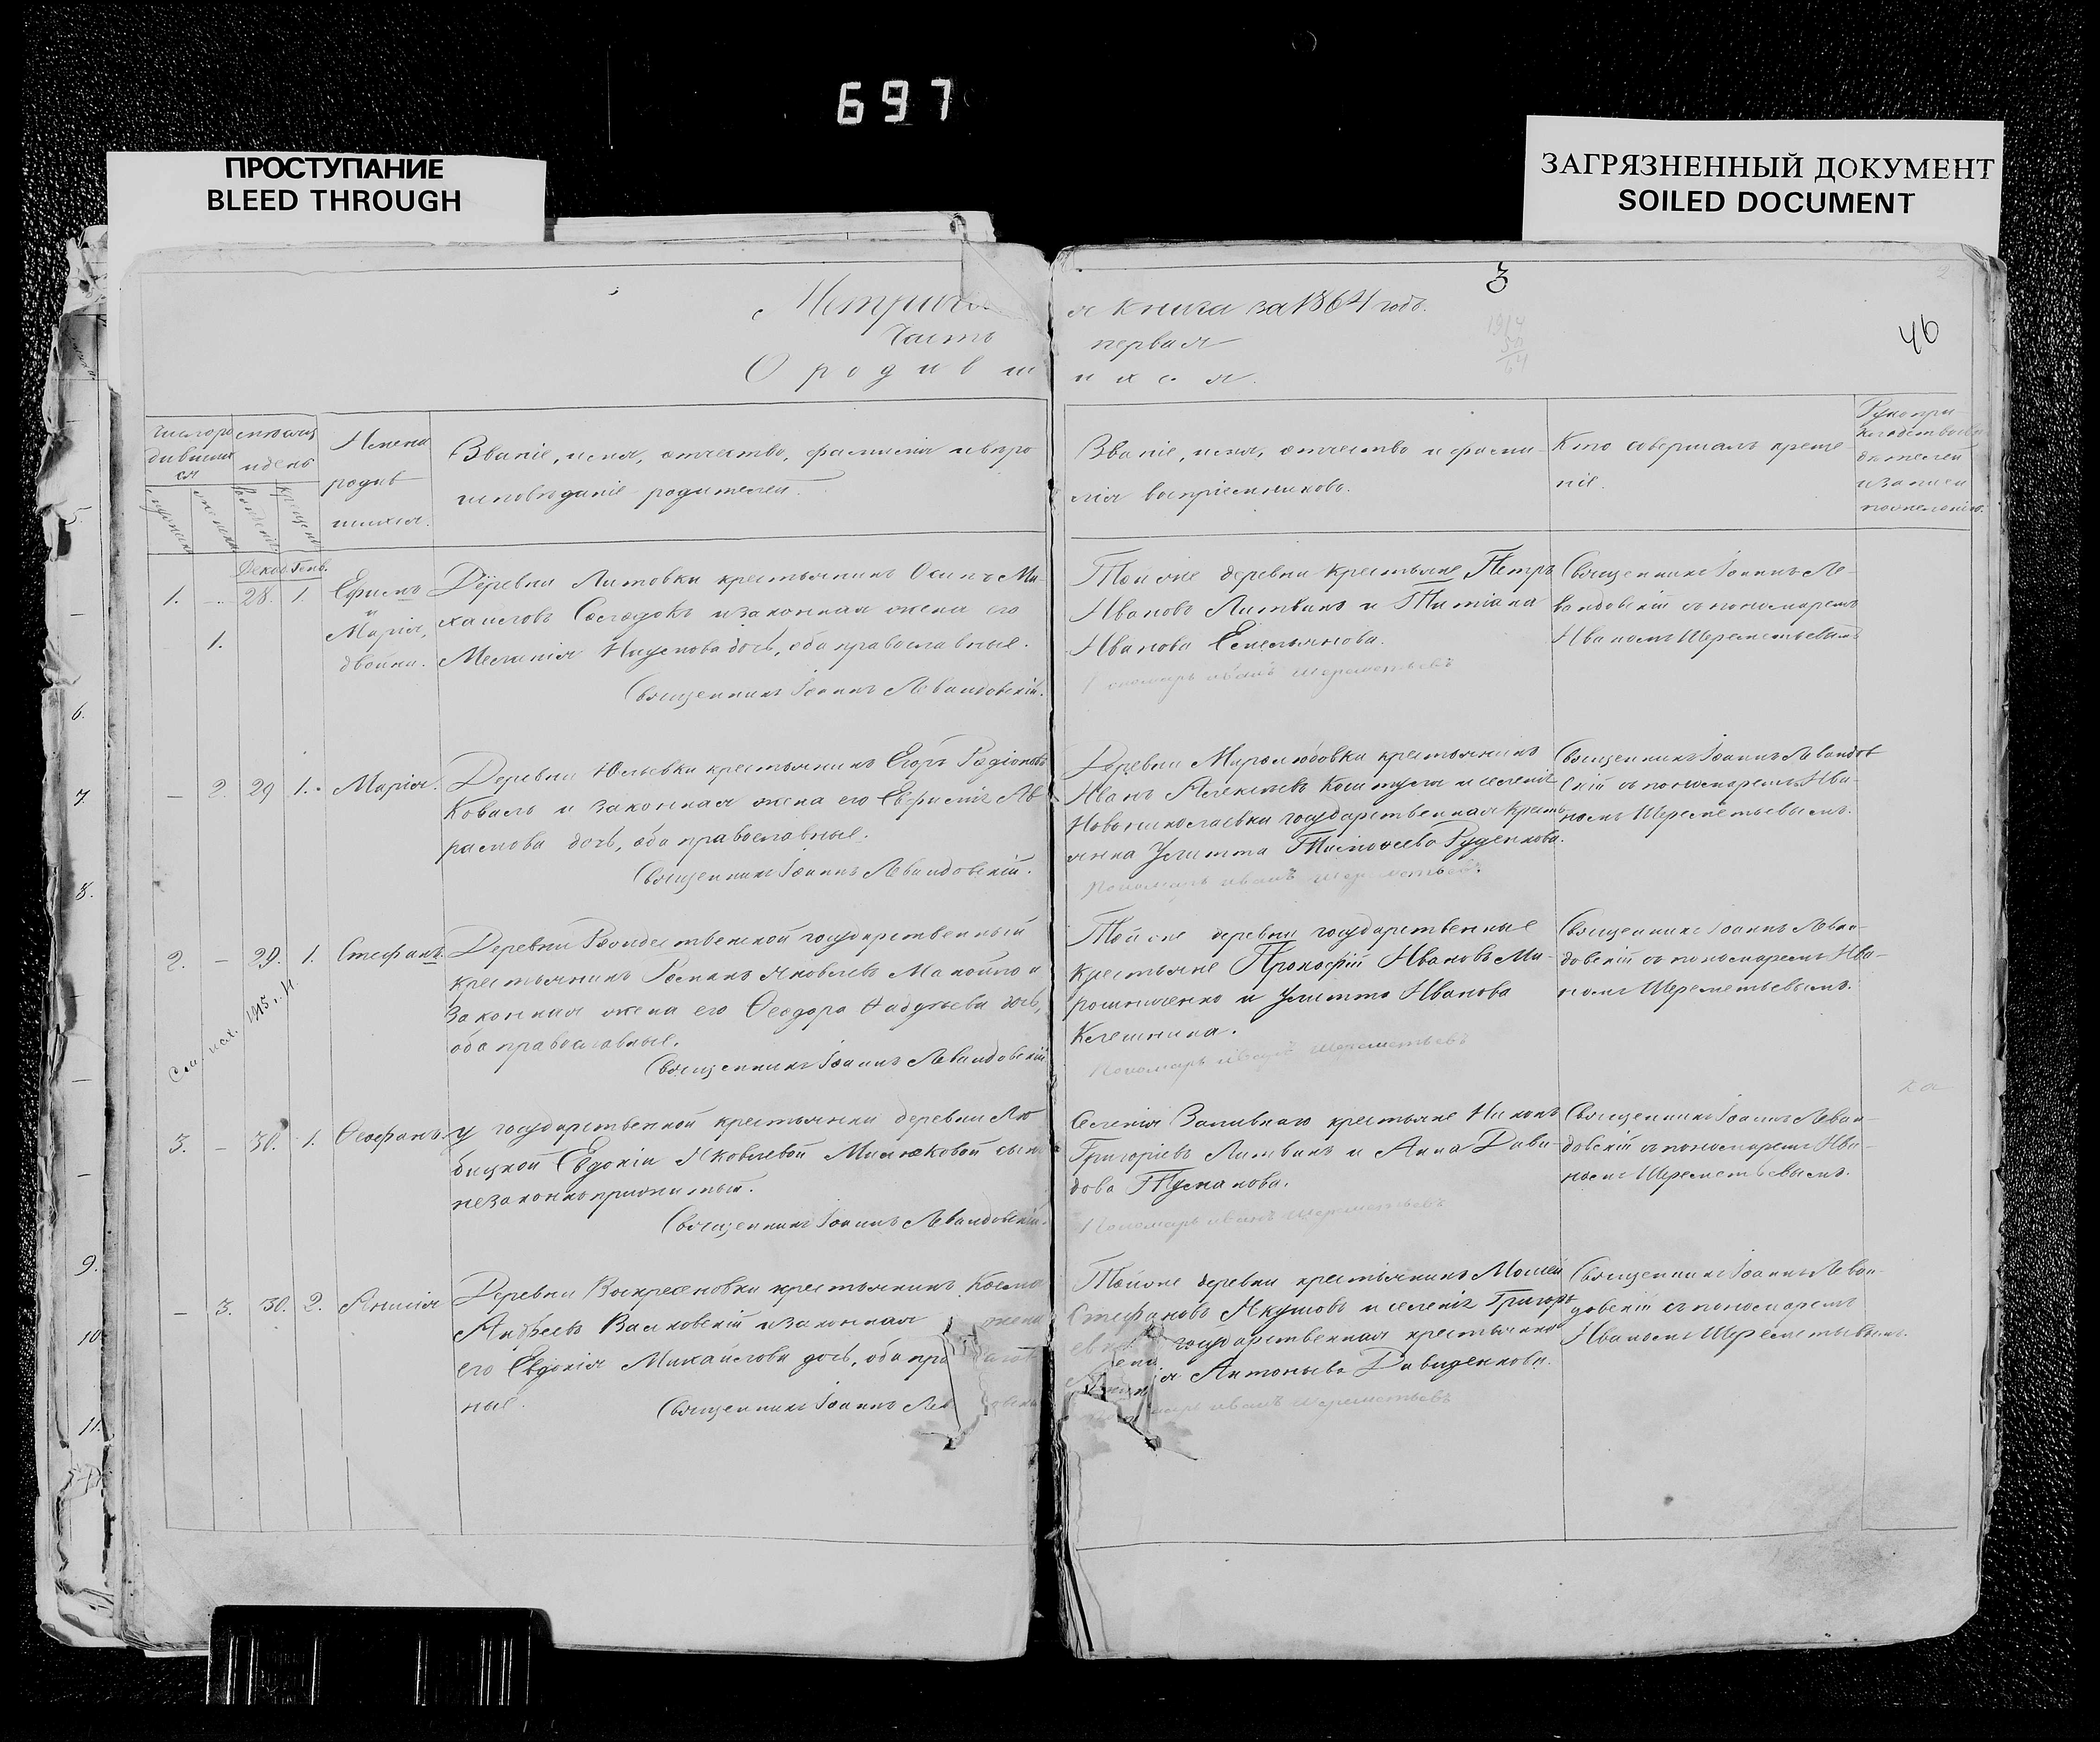 697
ПРОСТУПАНИЕ
BLEED THROUGH
ЗАГРЯЗНЕННЫЙ ДОКУМЕНТ
SOILED DOCUMENT
3
46
Метриче я книга за 1864 годъ.
Часть первая
О родившихся.
Число родившихся
мѣсяцъ и день
Имена родившихся.
Званіе, имя, отчество, фамилія и вѣро
исповѣданіе родителей.
Званіе, имя, отчество и фами-
лія воспріемниковъ.
Кто совершалъ креще
ніе.
Рукопри
кладство сви
дѣтелей
о записи
по желанію.
Декаб. Генв.
1. - 28. 1.
1.
Ефимъ
и
Марія,
двойни.
Деревни Литовки крестьянинъ Осипъ Ми-
хаиловъ и законная жена его
Меланія дочь, оба православные.
Священникъ Іоаннъ Левандовскій.
Той же деревни крестьяне Петръ
Ивановъ Литвинъ и Татіана
Иванова Емельянова.
Пономарь Иванъ Шереметьевъ
Священникъ Іоаннъ Ле-
вандовскій съ пономаремъ
Иваномъ Шереметьевымъ
- 2. 29 1. Марія.
Деревни Юльевки крестьянинъ Егоръ Родіоновъ
Коваль и законная жена его Евфимія Ав
рамова дочь, оба православные.
Священникъ Іоаннъ Левандовскій.
Деревни Миролюбовки крестьянинъ
Иванъ Алексѣевъ и селенія
Новониколаевки государственная кресть-
янка Улитта Тимофеева Руденкова.
Пономарь Иванъ Шереметьевъ
Священникъ Іоаннъ Левандов
скій съ пономаремъ Ива-
номъ Шереметьевымъ.
2. - 29. 1. Стефанъ.
Деревни Рождественской государственный
крестьянинъ Романъ Яковлевъ и
законная жена его Феодора Фаддѣева дочь,
оба православные.
Священникъ Іоаннъ Левандовскій
Той же деревни государственные
крестьяне Прокофій Ивановъ Ми-
рошниченко и Улитта Иванова
Пономарь Иванъ Шереметьевъ
Священникъ Іоаннъ Леван-
довскій съ пономаремъ Ива-
номъ Шереметьевымъ.
1915. г.
3. - 30. 1. Феофанъ.
У государственной крестьянки деревни Лю
бицкой Евдокіи Яковлевой сынъ
незаконноприжитый.
Священникъ Іоаннъ Левандовскій.
Селенія Заливнаго крестьяне Никонъ
Григорьевъ Литвинъ и Анна Дави-
дова Туманова.
Пономарь Иванъ Шереметьевъ
Священникъ Іоаннъ Леван-
довскій съ пономаремъ Ива-
номъ Шереметьевымъ.
- 3. 30. 2. Анисія
Деревни Воскресеновки крестьянинъ Косма
Андреевъ Валковскій и законная жена
его Евдокія Михайлова дочь, оба пра
ные.
Священникъ Іоаннъ Лев
Той же деревни крестьянинъ Моисей
Стефановъ Якушовъ и селенія Григорь
евки государственная крестьянка
Антоньева Давиденкова.
Иванъ Шереметьевъ
Священникъ Іоаннъ Леван-
довскій съ пономаремъ
Иваномъ Шереметьевымъ.
5.
6.
7.
8.
9.
10
11.